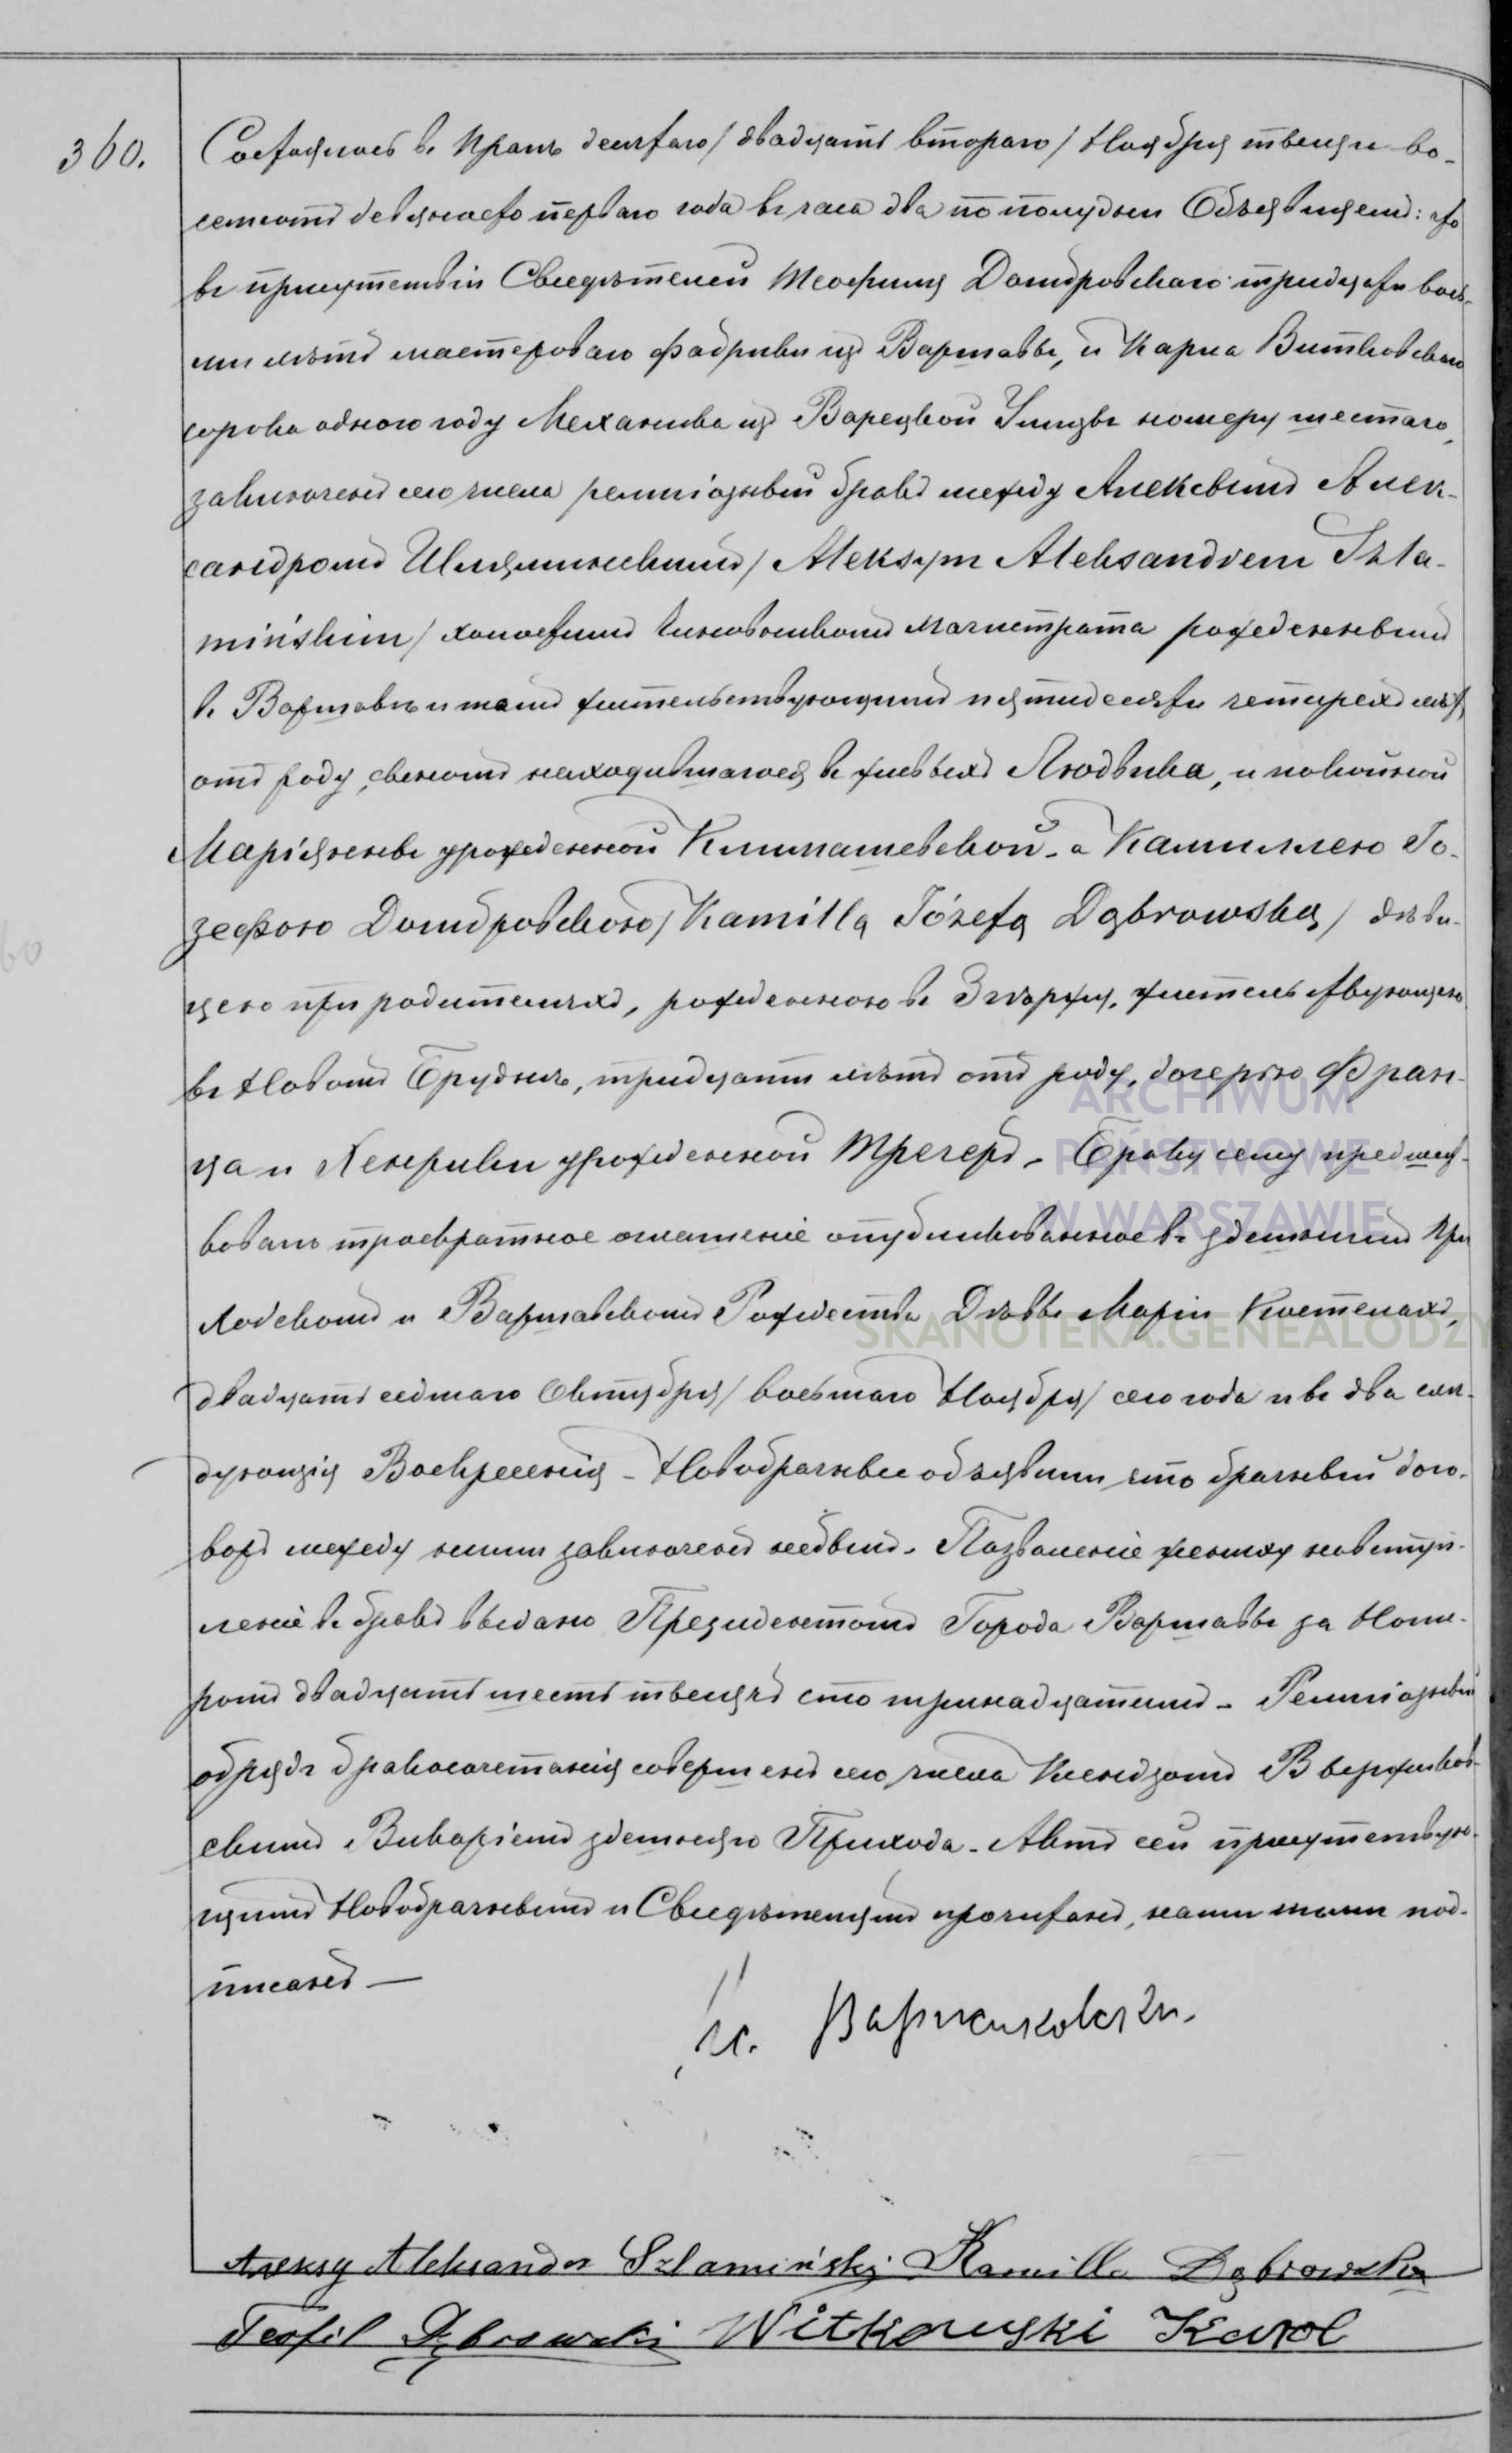 360.
Состоялось въ Прагѣ десятаго / двадцать втораго / Ноября тысяча во-
семьсотъ девяносто перваго года въ часа два по полудни Объявляемъ: что
въ присутствіи Свидѣтелей Теофиля Домбровскаго тридцати вось-
ми лѣтъ мастероваго фабрики изъ Варшавы, и Карла Витковскаго
сорока одного году Механика изъ Варецкой Улицы номеру шестаго,
заключенъ сего числа религіозный бракъ между Алексымъ Алек-
сандромъ Шляминскимъ / Aleksym Aleksandrem Szla-
mińskim / холостымъ чиновникомъ магистрата рожденнымъ
въ Варшавѣ и тамъ жительствующимъ пятидесяти четырехъ лѣтъ
отъ роду, сыномъ находившагося въ живыхъ Людвика, и покойной
Маріянны урожденной Климашевской - а Камиллею Іо-
зефою Домбровскою / Kamillą Józefą Dąbrowską / дѣви-
цею при родителяхъ, рожденною въ Згержу, жительствующею
въ Новомъ Бруднѣ, тридцати лѣтъ отъ роду, дочерью Фран-
ца и Хенрики урожденной Трегеръ - Браку сему предшест-
вовало троекратное оглашеніе опубликованное въ здѣшнемъ При
ходскомъ и Варшавскомъ Рождества Дѣвы Маріи Костелахъ,
двадцать седьмаго Октября / восьмаго Ноября / сего года и въ два слѣ-
дующія Воскресенія - Новобрачные объявили что брачный дого-
воръ между ними заключенъ небылъ - Позволеніе жениху на вступ-
леніе въ бракъ выдано Президентомъ Города Варшавы за Номе-
ромъ двадцать шесть тысячъ сто тринадцатымъ - Религіозный
обрядъ бракосочетанія совершенъ сего числа Ксендзомъ
скимъ Викаріемъ здѣшняго Прихода - Актъ сей присутствую-
щимъ Новобрачнымъ и Свидѣтелямъ прочитанъ, нами и ими под-
писанъ —
Aleksy Aleksander Szlamiński Kamilla Dąbrowska
Teofil Dąbrowski Witkowski Karol
ARCHIWUM
PAŃSTWOWE
W WARSZAWIE
SKANOTEKA.GENEALODZY